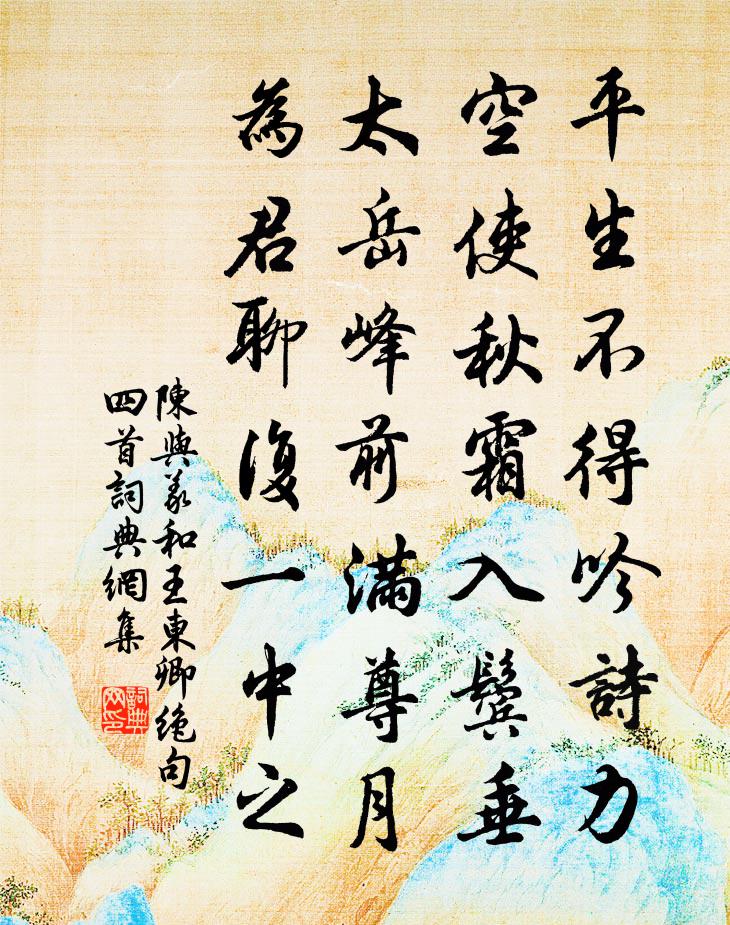 平生不得吟詩力
空使秋霜入鬢垂
太岳峰前滿尊月
為君聊復一中之
陳與義和王東卿絶句
四首詞典網集
詞典
网印